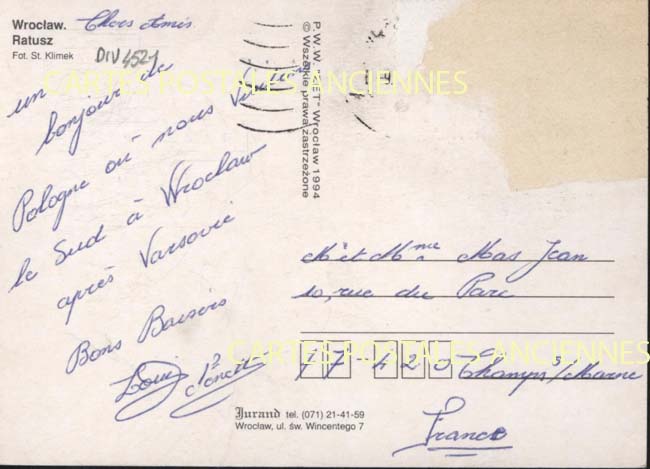 Wrocław.
Ratusz
Fot. St. Klimek
DIV4521
Chers Amis
un
bonjour de
Pologne où nous visitons
le Sud à Wroclaw
après Varsovie
Bons Baisers
P.W.W. Wrocław 1994
© Wszelkie prawa zastrzeżone
CARTES POSTALES ANCIENNES
Mr et Mme Mas Jean
10, rue du Parc
CARTES POSTALES ANCIENNES
77 420 Champs s/Marne
France
Jurand tel. (071) 21-41-59
Wrocław, ul. św. Wincentego 7